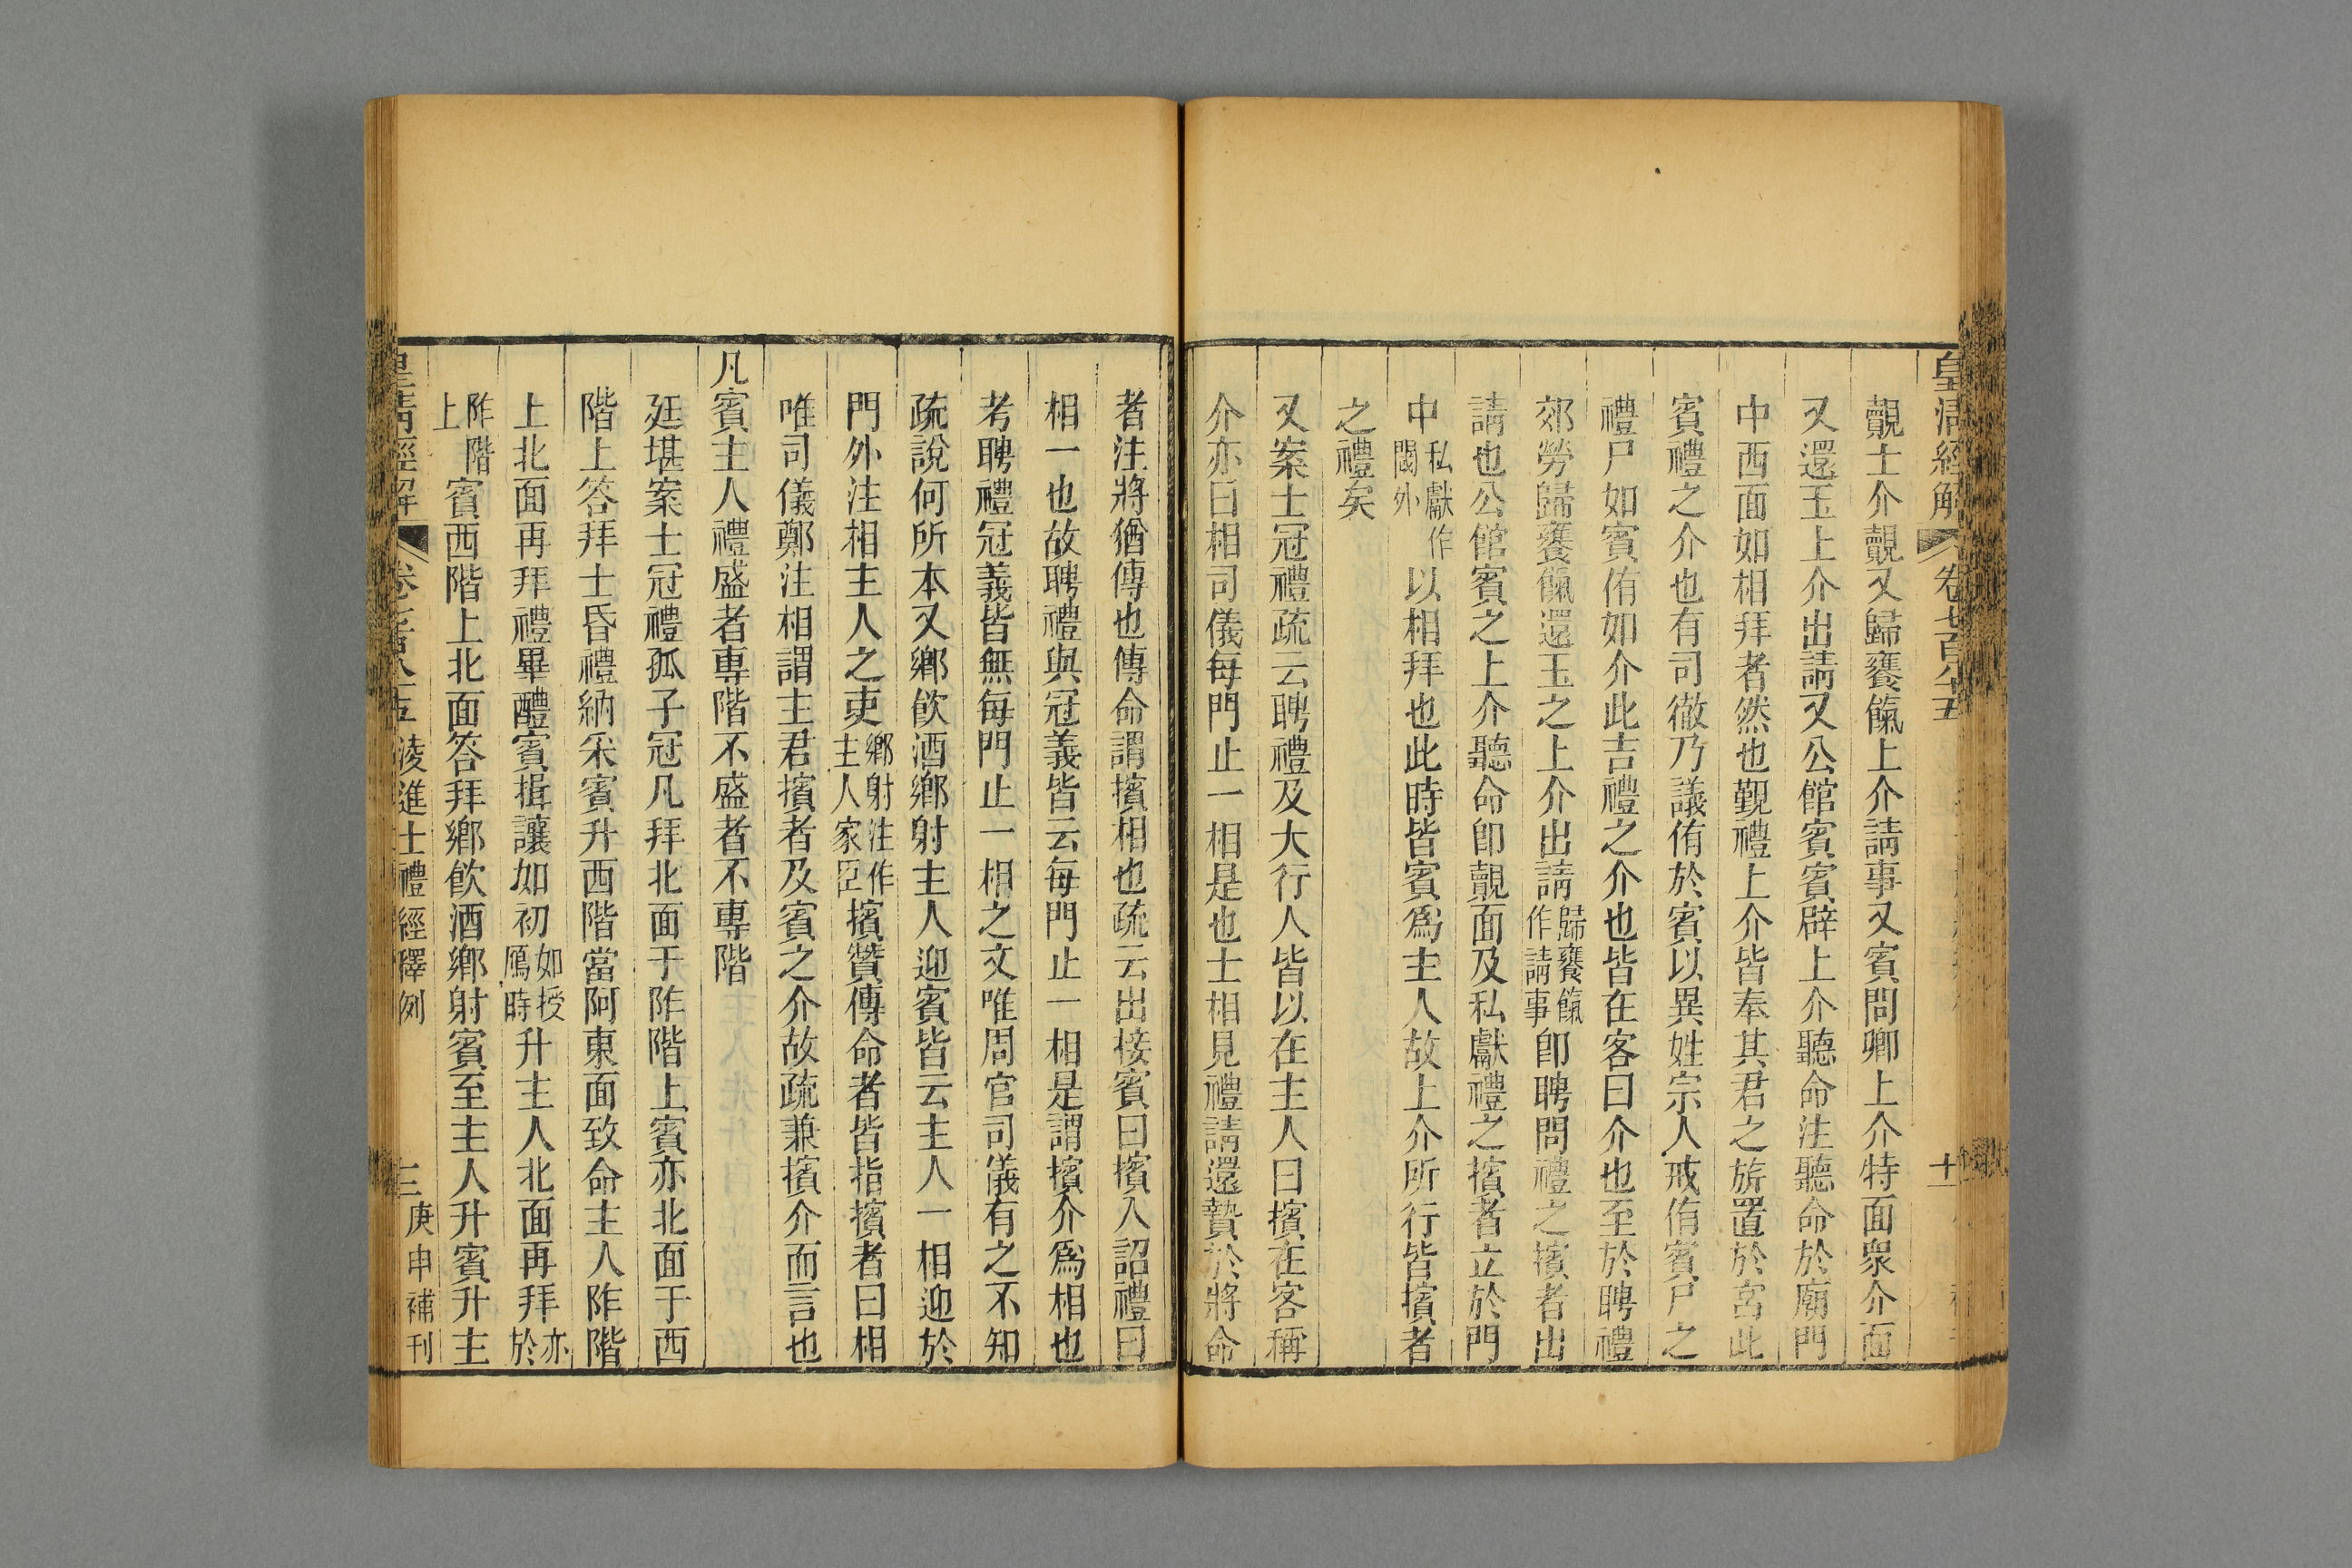 皇清經解 卷七百八十五
覿士介覿又歸饔餼上介請事又賓問卿上介特面衆介面
又還玉上介出請又公館賓賓辟上介聽命注聽命於廟門
中西面如相拜者然也覲禮上介皆奉其君之旂置於宮此
賓禮之介也有司徹乃議侑於賓以異姓宗人戒侑賓尸之
禮尸如賓侑如介此吉禮之介也皆在客曰介也至於聘禮
郊勞歸饔餼還玉之上介出請歸饔餼作請事卽聘問禮之擯者出
請也公館賓之上介聽命卽覿面及私獻禮之擯者立於門
中私獻作閾外以相拜也此時皆賓爲主人故上介所行皆擯者
之禮矣
又案士冠禮疏云聘禮及大行人皆以在主人曰擯在客稱
介亦曰相司儀每門止一相是也士相見禮請還贄於將命
者注將猶傳也傳命謂擯相也疏云出接賓曰擯入詔禮曰
相一也故聘禮與冠義皆云每門止一相是謂擯介爲相也
考聘禮冠義皆無每門止一相之文唯周官司儀有之不知
疏說何所本又鄉飮酒鄉射主人迎賓皆云主人一相迎於
門外注相主人之吏鄉射注作主人家臣擯贊傳命者皆指擯者曰相
唯司儀鄭注相謂主君擯者及賓之介故疏兼擯介而言也
凡賓主人禮盛者專階不盛者不專階
廷堪案士冠禮孤子冠凡拜北面于阼階上賓亦北面于西
階上答拜士昏禮納采賓升西階當阿東面致命主人阼階
上北面再拜禮畢醴賓揖讓如初如授鴈時升主人北面再拜亦於
阼階上賓西階上北面答拜鄉飮酒鄉射賓至主人升賓升主
皇清經解 卷七百八十五 淩進士禮經釋例 三 庚申補刊